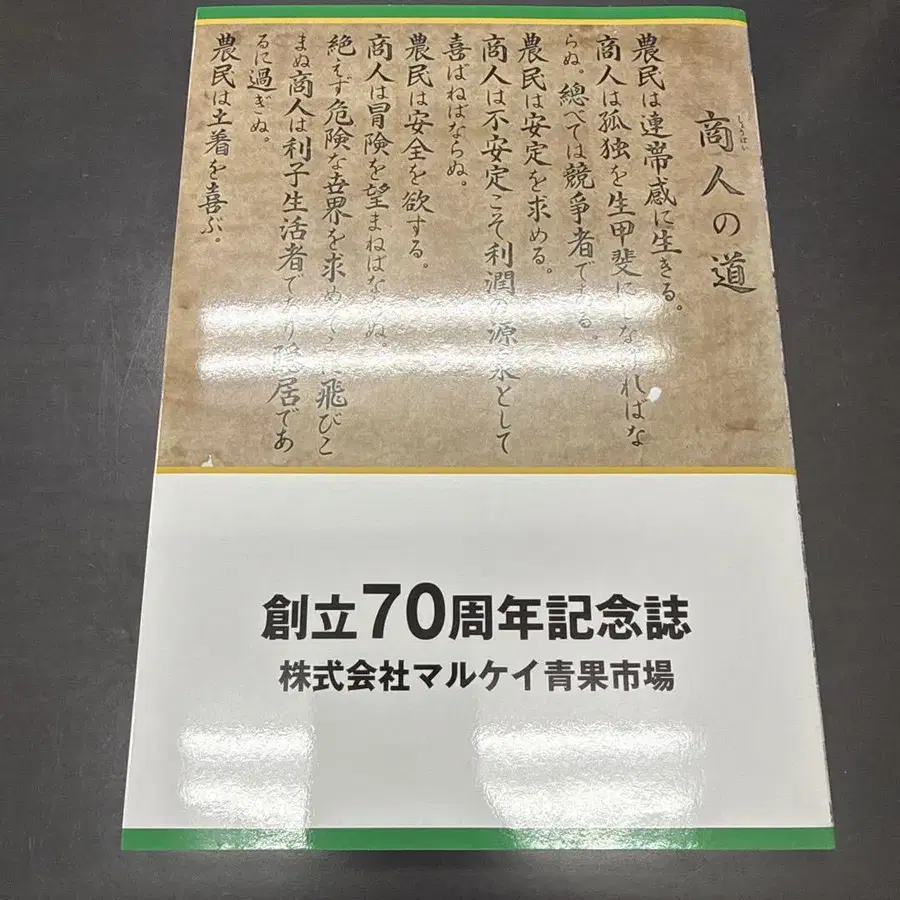 商人の道
しょうばい
農民は連帯感に生きる。
商人は孤独を生甲斐にしなければな
らぬ。總べては競争者である。
農民は安定を求める。
商人は不安定こそ利潤の源泉として
喜ばねばならぬ。
農民は安全を欲する。
商人は冒険を望まねばならぬ。
絶えず危険な世界を求めそこに飛びこ
まぬ商人は利子生活者であり隠居であ
るに過ぎぬ。
農民は土着を喜ぶ。
創立70周年記念誌
株式会社マルケイ青果市場